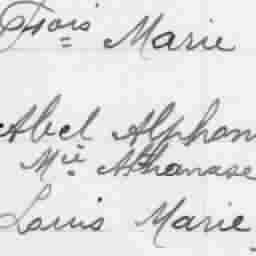 Fçois Marie
Abel Alphon
Mie Athanase
Louis Marie